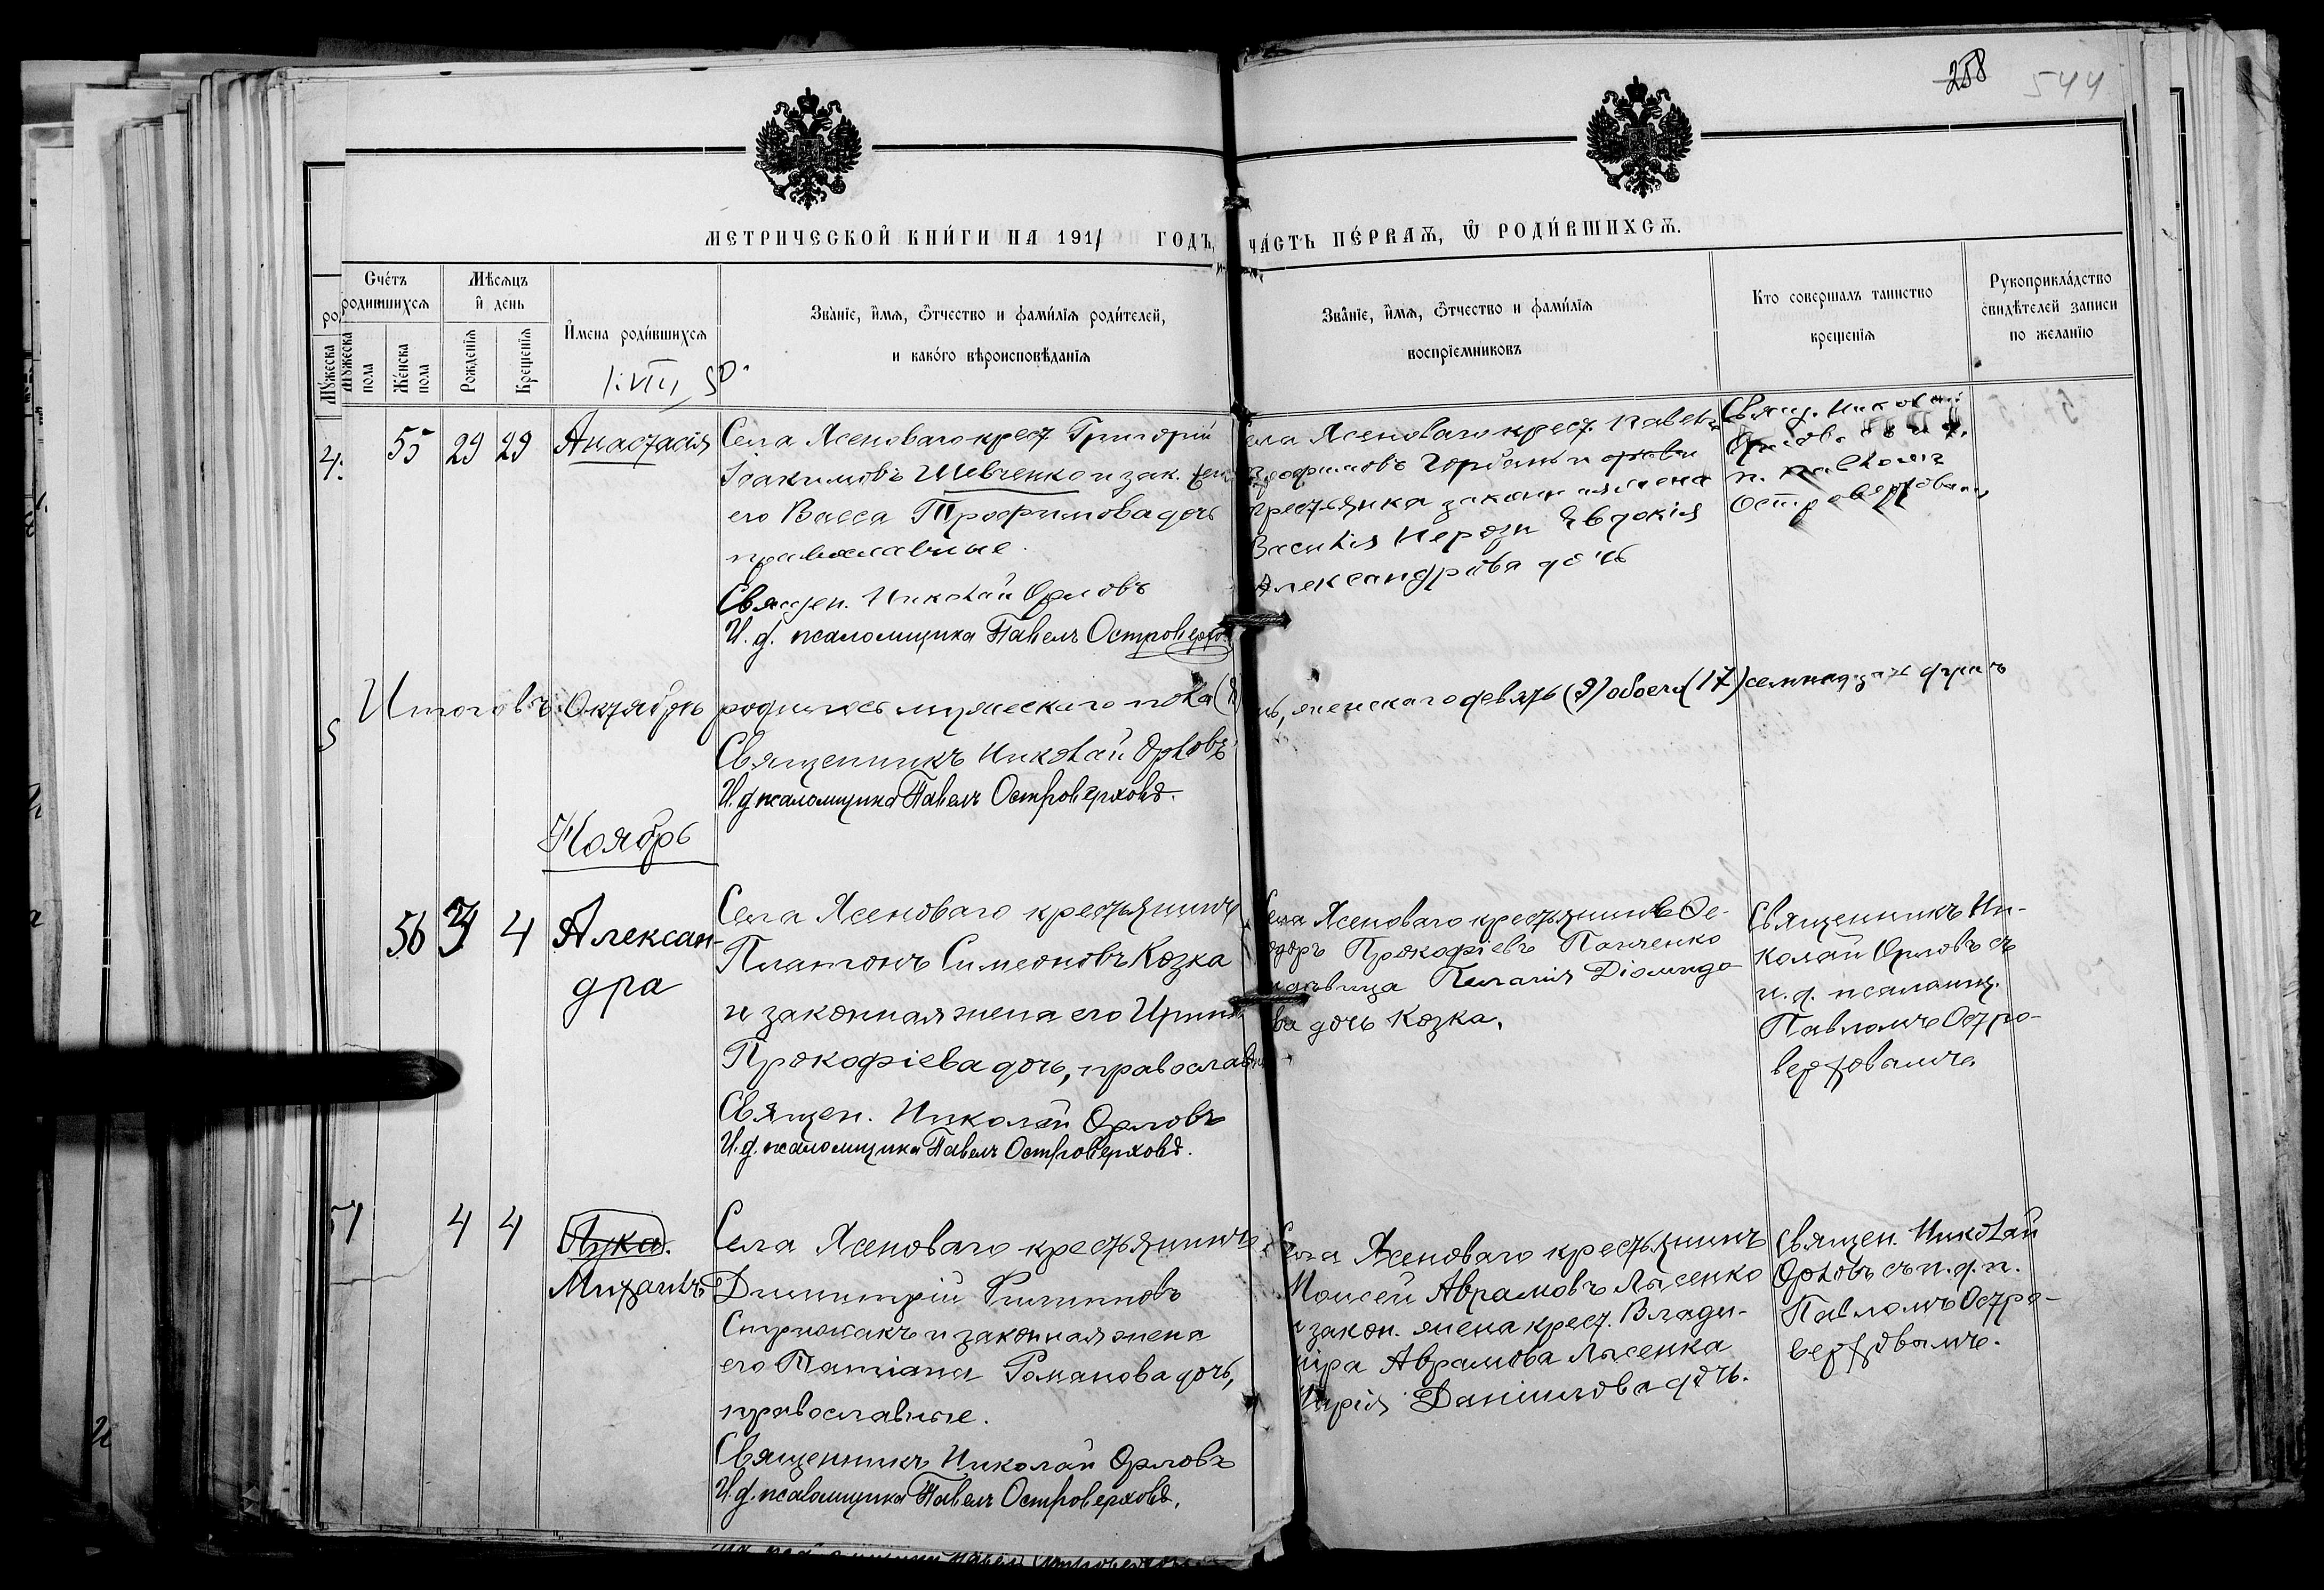 258
544
МЕТРИЧЕСКОЙ КНИ́ГИ НА 1911 ГОДЪ, ЧА́СТЬ ПЕ́РВАѦ, Ѿ РОДИ́ВШИХСѦ.
Сче́тъ родившихсѧ
Мѣсѧцъ и҆ день
И҆мена роди́вшихсѧ
Зва́нїе, и҆́мѧ, ѻ҆́тчество и фами́лїѧ роди́телей,
и како́го вѣроисповѣ́данїѧ
Зва́нїе, и҆́мѧ, ѻ҆́тчество и фами́лїѧ
воспрїемниковъ
Кто совершалъ таинство
крещенїѧ
Рукоприкла́дство
свидѣ́телей записи
по желанїю
Мꙋ́жеска пола
Же́нска пола
Рожденїѧ
Крещенїѧ
55 29 29 Анастасія
Села Ясеноваго крест Григорій
Іоакимовъ Шевченко и зак.
его Васса Трофимова дочь
православные.
Священ. Николай Орловъ
И. д. псаломщика Павелъ Островерхов
Села Ясеноваго крест. Павелъ
Трофимовъ Горбань и
крестьянка законная жена
Василія Евдокія
Александрова дочь
Свящ. Николай
Орловъ съ и. д.
п. Павломъ
Островерховымъ
Итого въ Октябрѣ родилось мужескаго пола (8)
женскаго девять (9) обоего (17) семнадцать душъ
Священникъ Николай Орловъ
И. д псаломщика Павелъ Островерховъ.
Ноябрь
56 3 4 Алексан-
дра
Села Ясеноваго крестьянинъ
Платонъ Симеоновъ Козка
и законная жена его Ирина
Прокофіева дочь, православн
Священ. Николай Орловъ
И. д. псаломщика Павелъ Островерховъ.
Села Ясеноваго крестьянинъ Ѳе-
одоръ Прокофіевъ Панченко
и дѣвица Пелагія Діомидо
ва дочь Козка.
Священникъ Ни-
колай Орловъ съ
и. д. псаломщ.
Павломъ Остро-
верховымъ.
57 4 4 Лука.
Михаилъ
Села Ясеноваго крестьянинъ
Димитрій Филиповъ
и законная жена
его Татіана Романова дочь,
православные.
Священникъ Николай Орловъ
И. д. псаломщика Павелъ Островерховъ.
Села Ясеноваго крестьянинъ
Моисей Аврамовъ Лысенко
и закон. жена крест. Влади-
міра Аврамова Лысенка
Марія Даніилова дочь.
Священ. Николай
Орловъ съ и. д. п.
Павломъ Остро-
верховымъ.